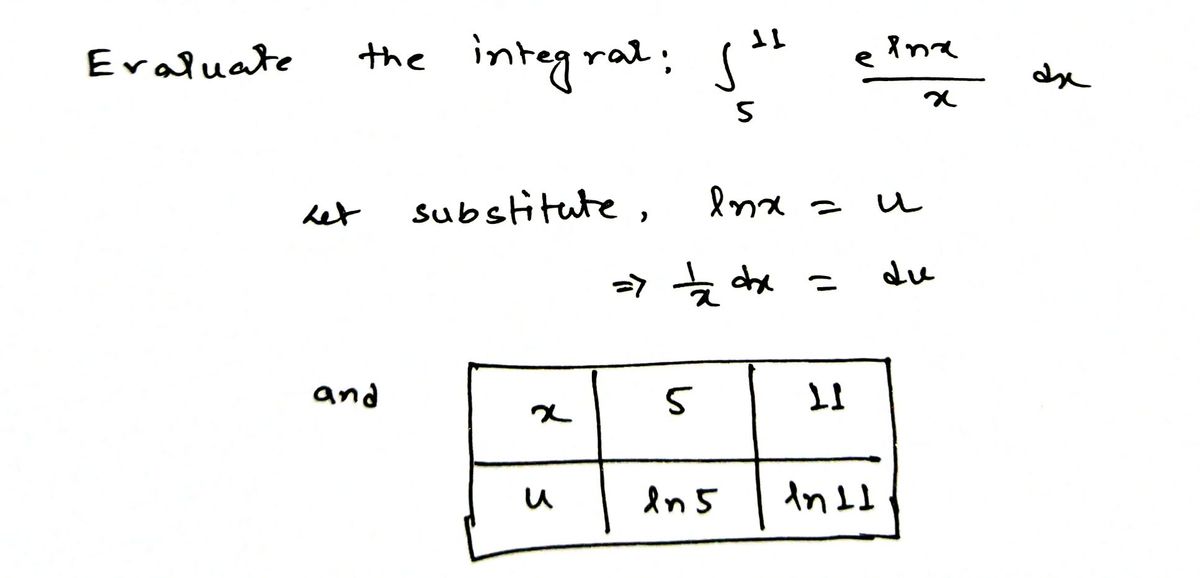 Evaluate the integral: ∫₅¹¹ e^{lnx}/x dx
Let substitute, lnx = u
⇒ 1/x dx = du
and
x 5 11
u ln5 ln11